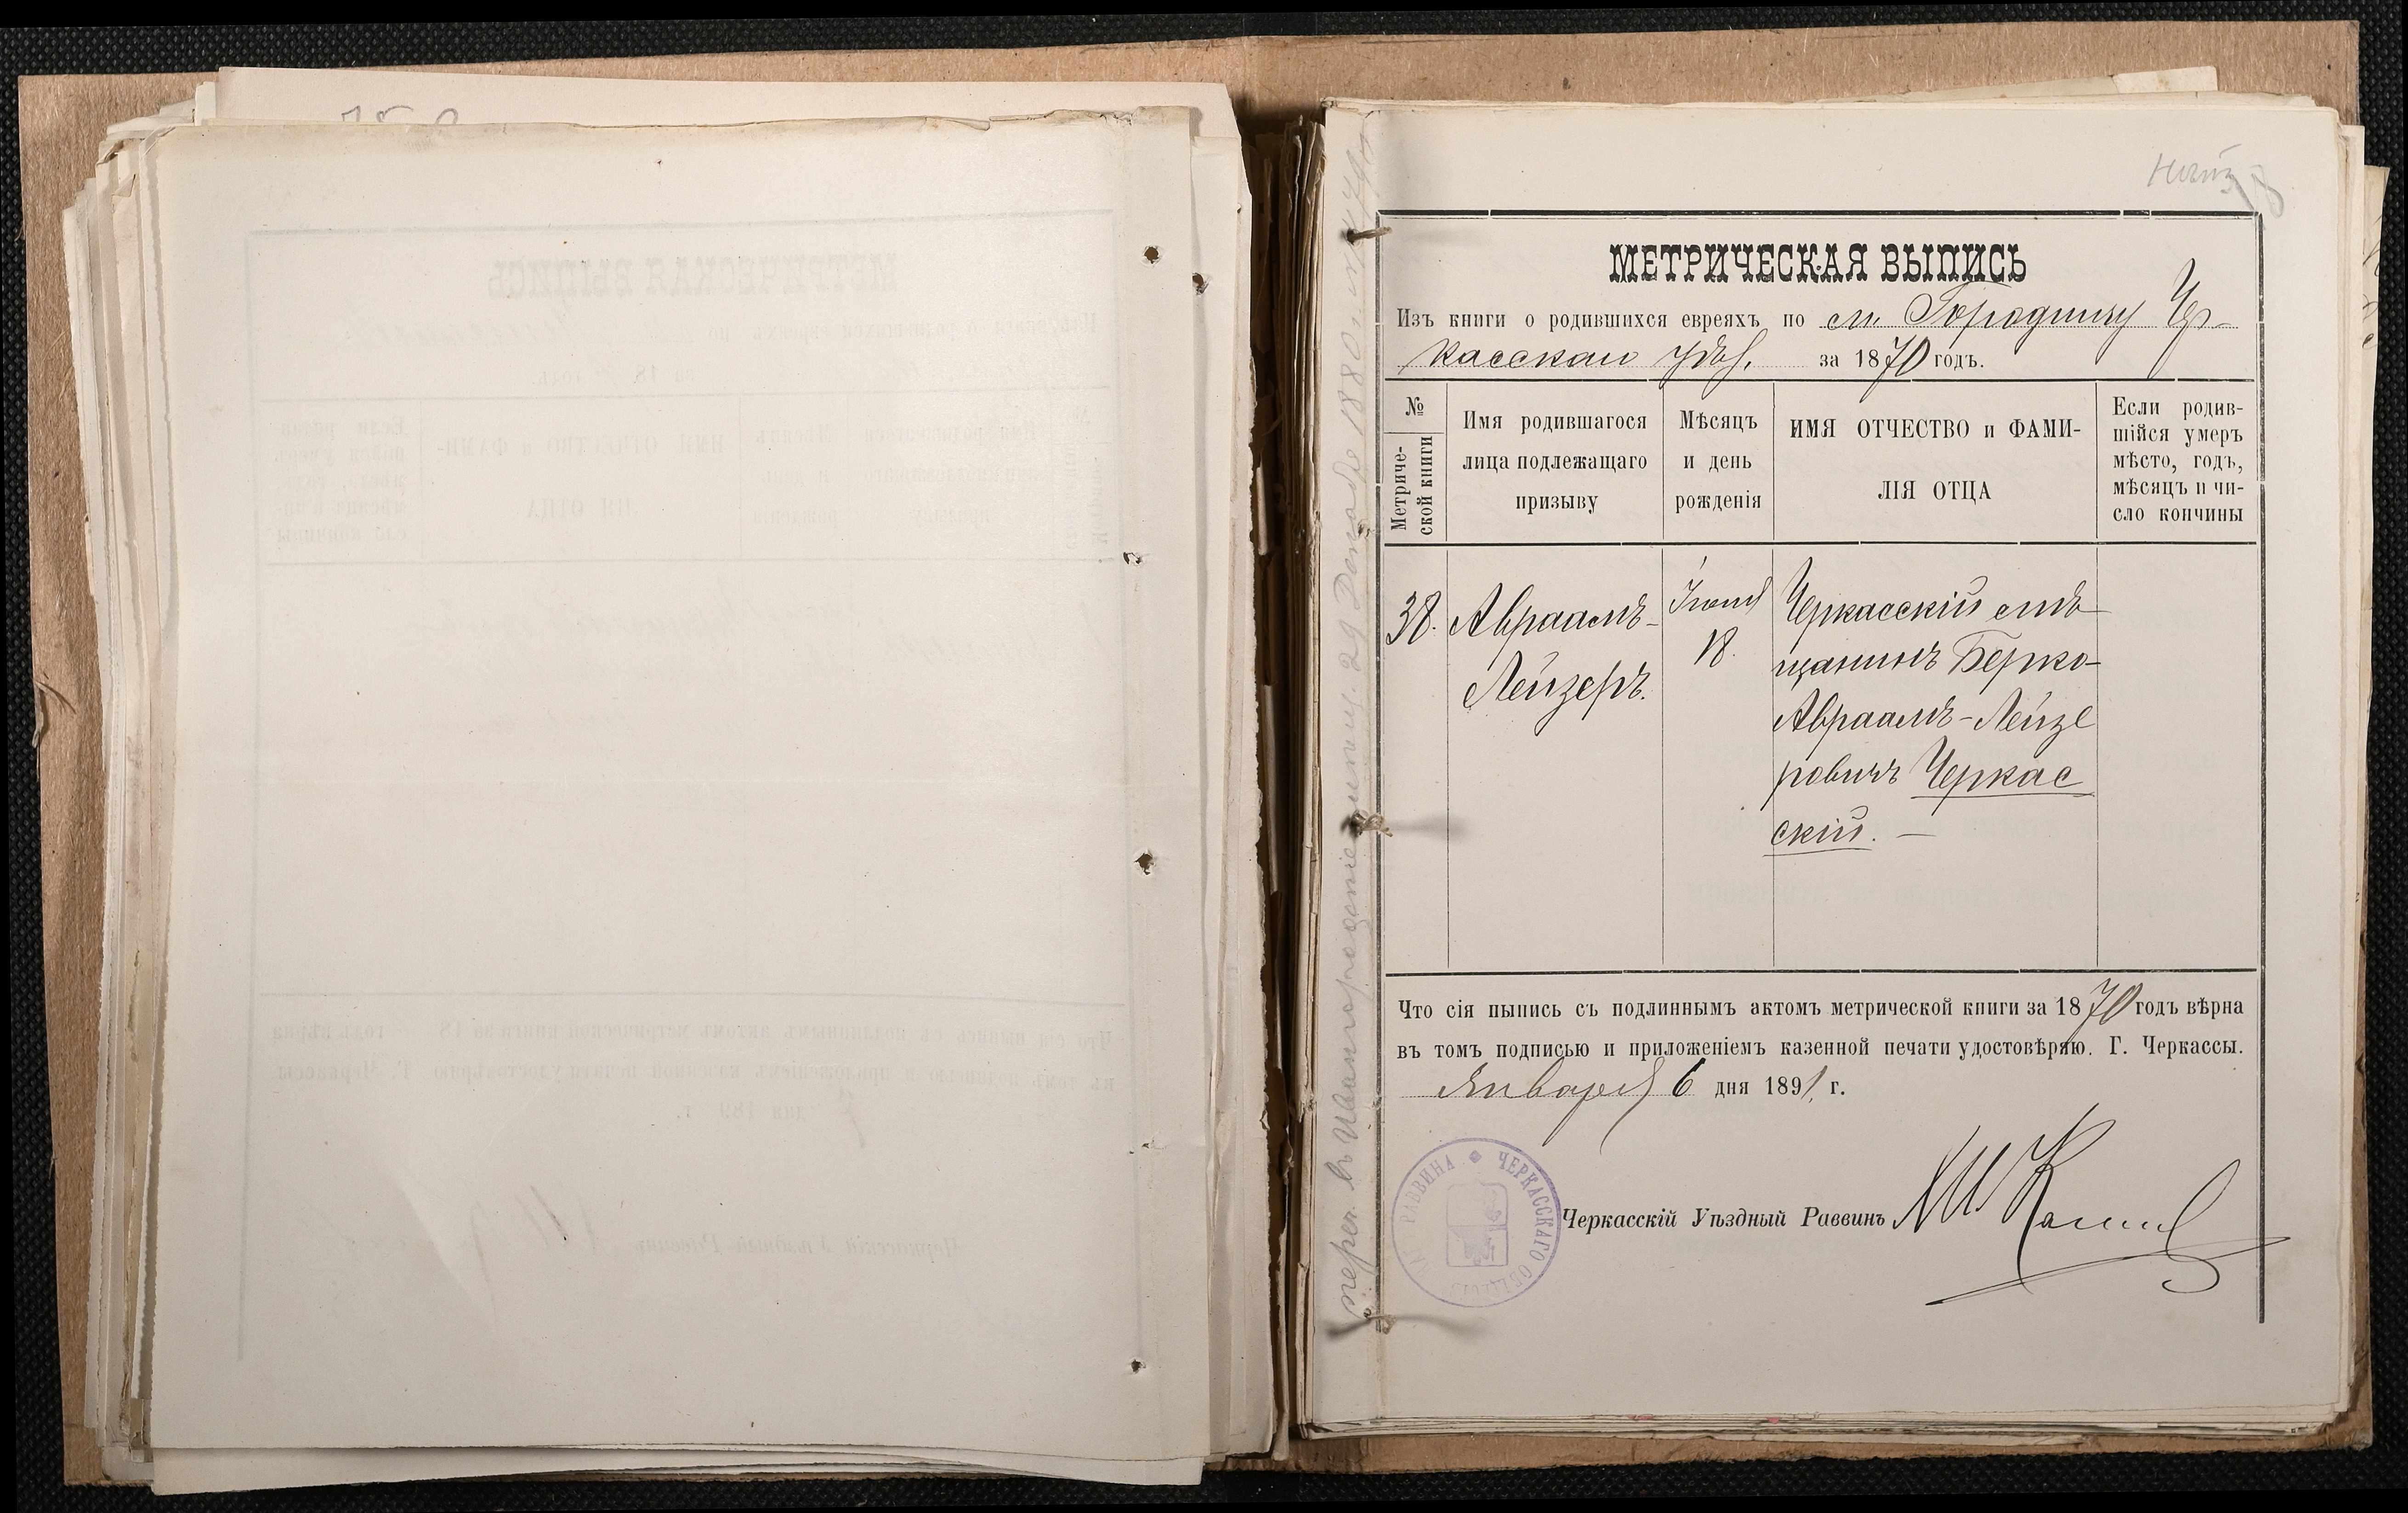 МЕТРИЧЕСКАЯ ВЫПИСЬ
Изъ книги о родившихся евреяхъ по м. Городищу Чер-
касскаго уѣз. за 1870 годъ.
№
Метриче-
ской книги
Имя родившагося
лица подлежащаго
призыву
Мѣсяцъ
и день
рожденія
ИМЯ ОТЧЕСТВО и ФАМИ-
ЛІЯ ОТЦА
Если родив-
шійся умеръ
мѣсто, годъ,
мѣсяцъ и чи-
сло кончины
38.
Авраамъ-
Лейзеръ.
18.
Черкасскій мѣ-
щанинъ Берко-
Авраамъ-Лейзе
ровичъ Черкас
скій. —
Что сія выпись съ подлиннымъ актомъ метрической книги за 1870 годъ вѣрна
въ томъ подписью и приложеніемъ казенной печати удостовѣряю. Г. Черкассы.
Января 6 дня 1891 г.
РАВВИНА ЧЕРКАССКАГО
Черкасскій Уѣздный Раввинъ